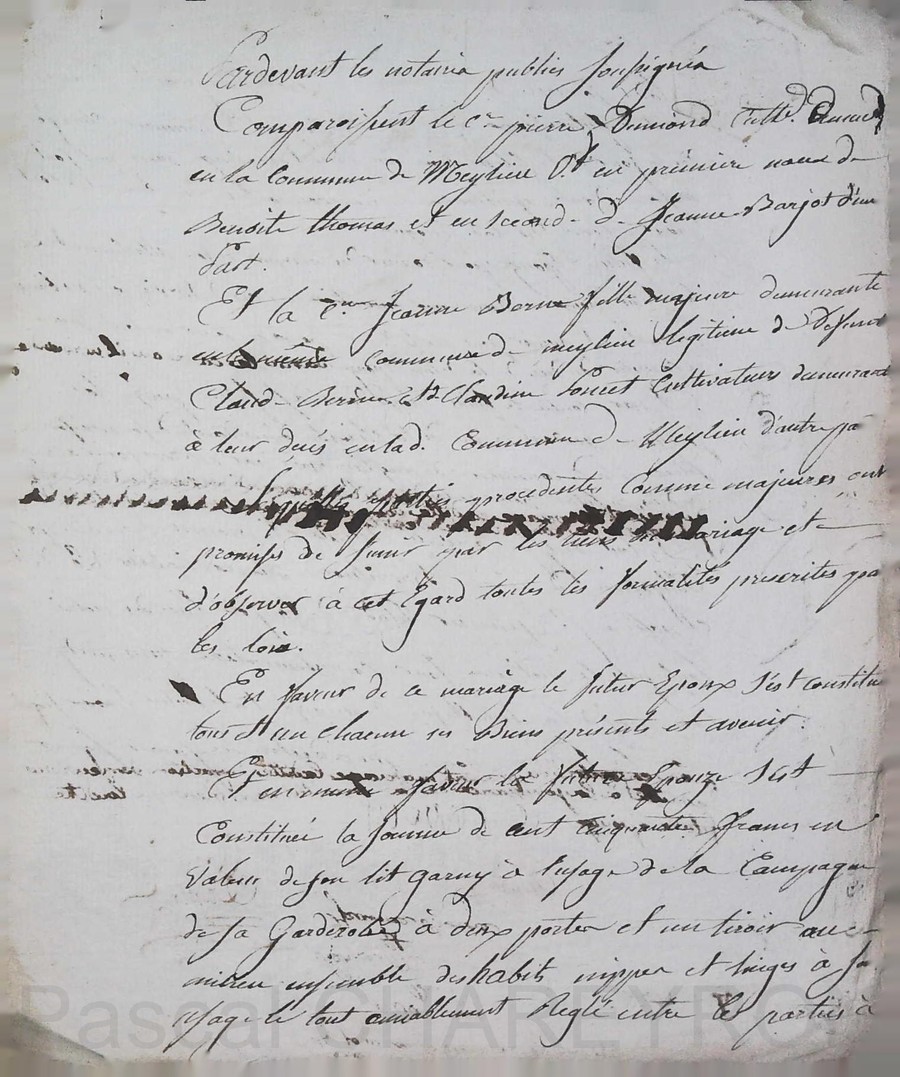 Pardevant les notaires publics soussignés
Comparoissent le c.en pierre Dumond cult.r demeurt
en la Commune de Meylieu V.f en première noces de
Benoite thomas et en second de Jeanne Barjot d'une
Part.
Et la C.enne Jeanne Berne fille majeure demeurante
en la même commune de meylieu legitime de Defunt
Claude Berne et Claudine Poncet Cultivateurs demeurant
à leur decès en lad. Commune de Meylieu d'autre pa
Lesquelles parties procedentes Comme majeures ont
promises de s'unir par les liens du mariage et
d'observer à cet Egard toutes les formalités prescrites pa
les loix.
En faveur de ce mariage le futur Epoux s'est constitu
tous et un chacun ses Biens présents et avenir.
Et en même faveur la future Epouze s'est
Constituée la somme de cent cinquante francs en
Valeur de son lit garny à l'usage de la Campagne
de sa Garderobe à deux portes et un tiroir au
milieu ensemble des habits nippes et linges à son
usage le tout amiablement Reglé entre les parties à
Pascal CHAREYRON